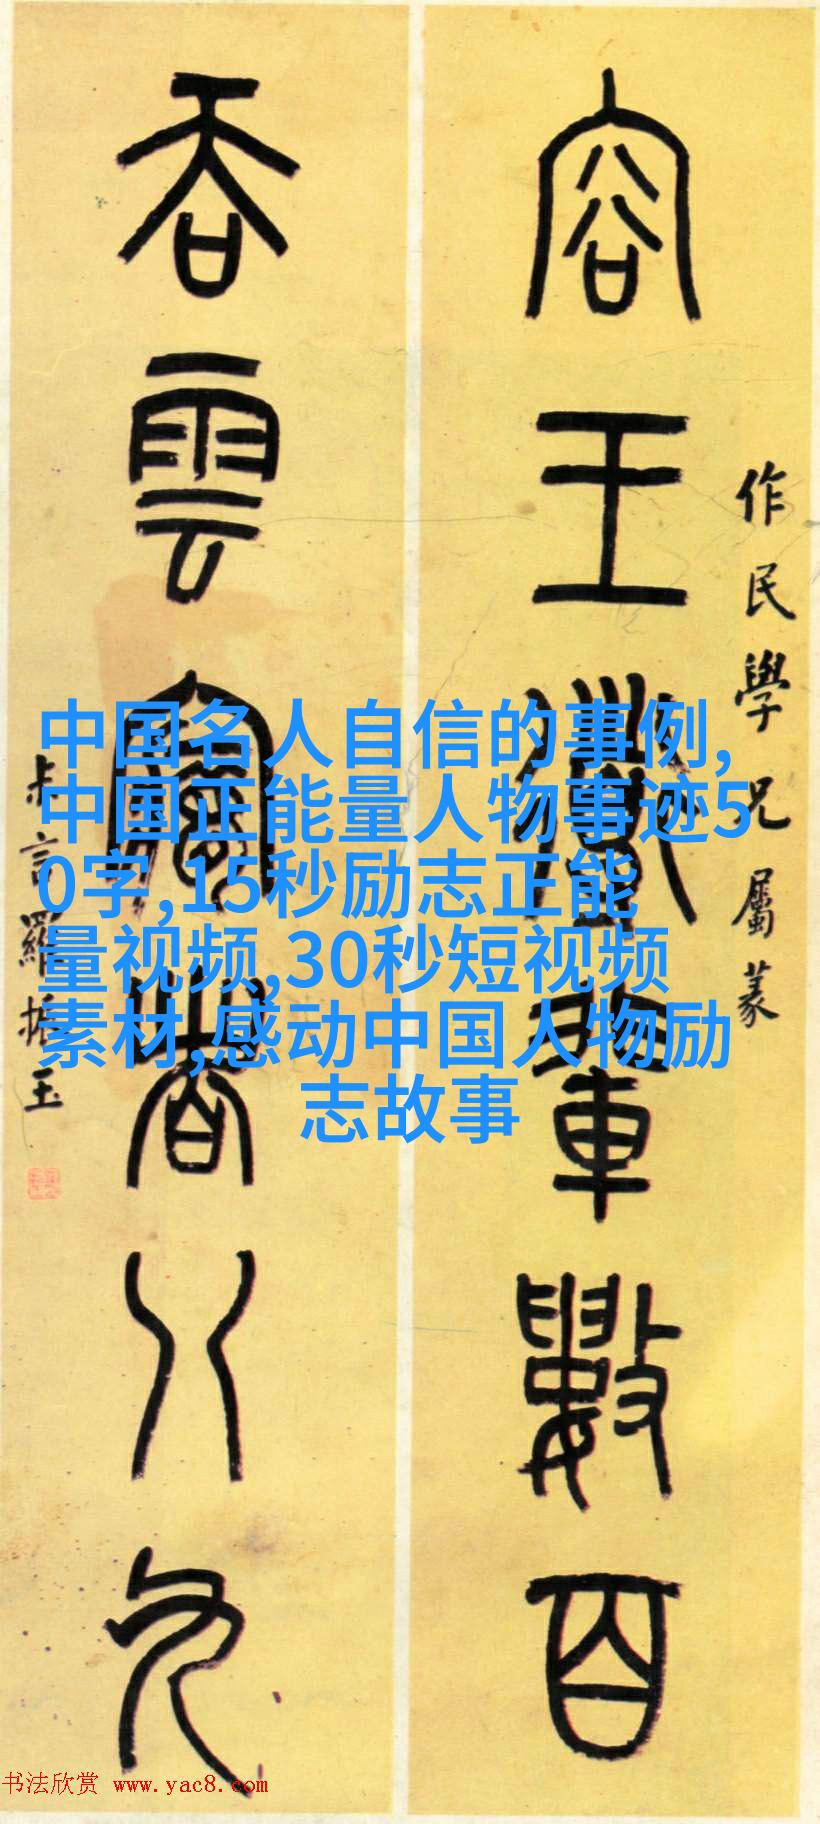 作民學兄屬篆
容王僕輩數百
吞雲夢者八九
叔言羅振玉
中国名人自信的事例,
中国正能量人物事迹5
0字,15秒励志正能
量视频,30秒短视频
素材,感动中国人物励
志故事
书法欣赏 www.yac8.com